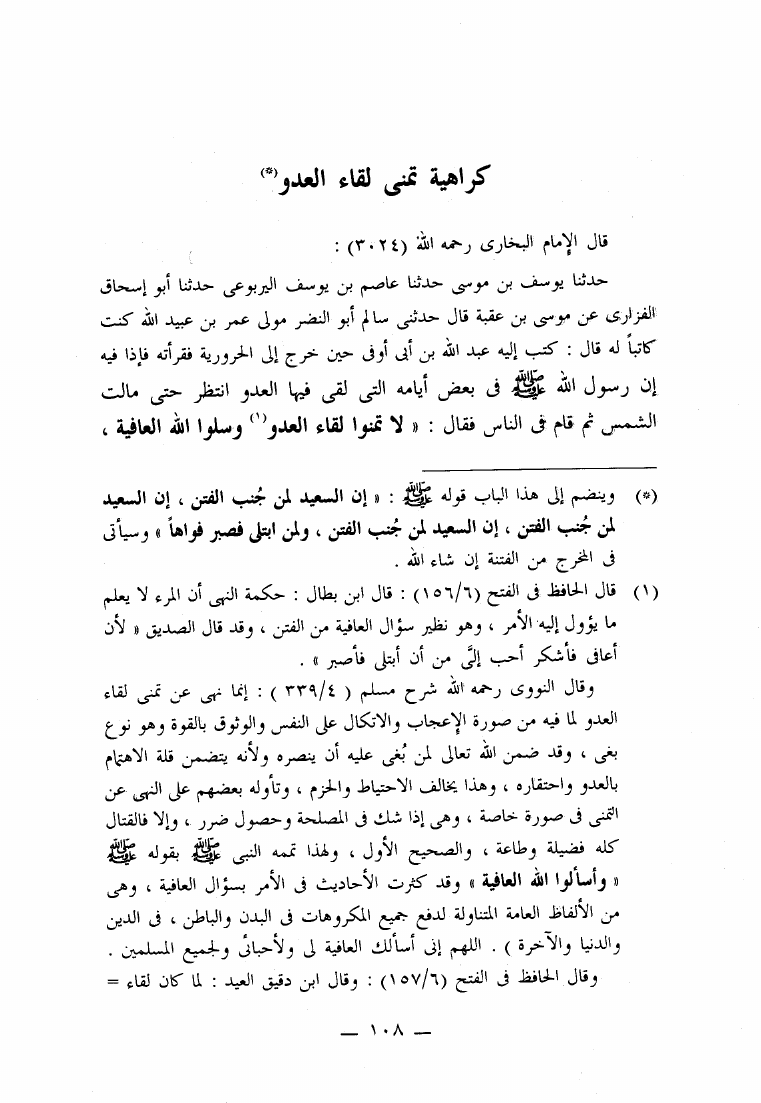 كراهية تمنى لقاء العدو(*)
قال الإمام البخارى رحمه الله (٣٠٢٤) :
حدثنا يوسف بن موسى حدثنا عاصم بن يوسف اليربوعى حدثنا أبو إسحاق
الفزارى عن موسى بن عقبة قال حدثنى سالم أبو النضر مولى عمر بن عبيد الله كنت
كاتباً له قال : كتب إليه عبد الله بن أبى أوفى حين خرج إلى الحرورية فقرأته فإذا فيه
إن رسول الله ﷺ فى بعض أيامه التى لقى فيها العدو انتظر حتى مالت
الشمس ثم قام فى الناس فقال : « لا تمنوا لقاء العدو(١) وسلوا الله العافية ،
(*) وينضم إلى هذا الباب قوله ﷺ : « إن السعيد لمن جُنب الفتن ، إن السعيد
لمن جُنب الفتن ، إن السعيد لمن جُنب الفتن ، ولمن ابتلى فصبر فواهاً » وسيأتى
فى المخرج من الفتنة إن شاء الله .
(١) قال الحافظ فى الفتح (١٥٦/٦) : قال ابن بطال : حكمة النهى أن المرء لا يعلم
ما يؤول إليه الأمر ، وهو نظير سؤال العافية من الفتن ، وقد قال الصديق « لأن
أعافى فأشكر أحب إلىَّ من أن أبتلى فأصبر » .
وقال النووى رحمه الله شرح مسلم ( ٣٣٩/٤ ) : إنما نهى عن تمنى لقاء
العدو لما فيه من صورة الإعجاب والاتكال على النفس والوثوق بالقوة وهو نوع
بغى ، وقد ضمن الله تعالى لمن بُغى عليه أن ينصره ولأنه يتضمن قلة الاهتمام
بالعدو واحتقاره ، وهذا يخالف الاحتياط والحزم ، وتأوله بعضهم على النهى عن
التمنى فى صورة خاصة ، وهى إذا شك فى المصلحة وحصول ضرر ، وإلا فالقتال
كله فضيلة وطاعة ، والصحيح الأول ، ولهذا تممه النبى ﷺ بقوله ﷺ
« وأسألوا الله العافية » وقد كثرت الأحاديث فى الأمر بسؤال العافية ، وهى
من الألفاظ العامة المتناولة لدفع جميع المكروهات فى البدن والباطن ، فى الدين
والدنيا والآخرة ) . اللهم إنى أسألك العافية لى ولأحبائى ولجميع المسلمين .
وقال الحافظ فى الفتح (١٥٧/٦) : وقال ابن دقيق العيد : لما كان لقاء =
— ١٠٨ —